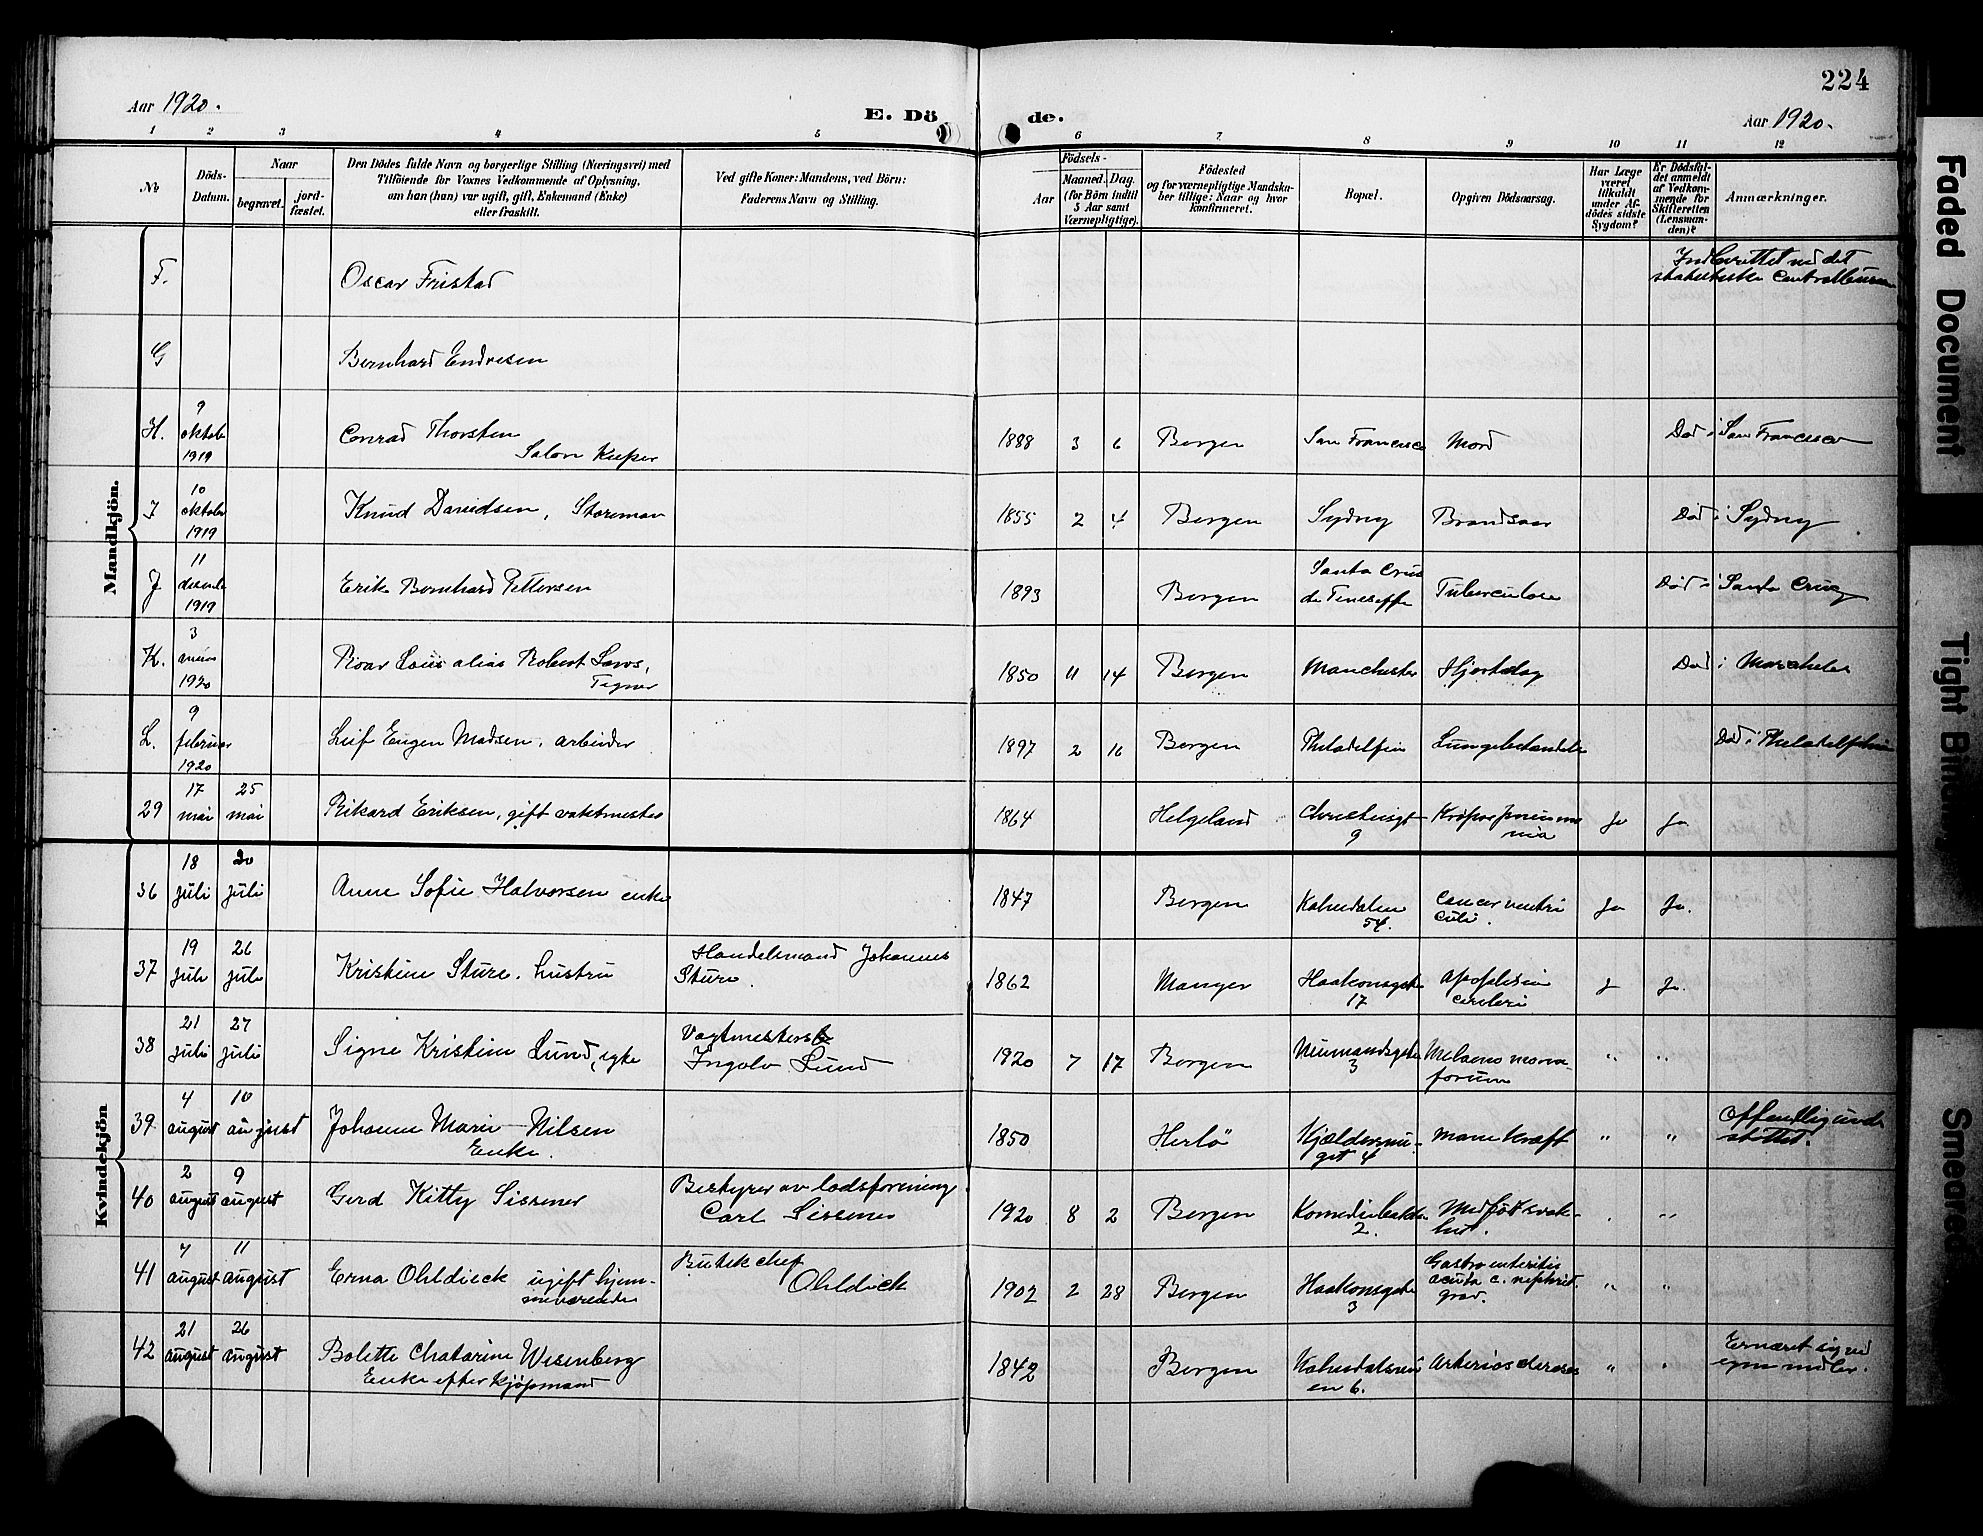 224
Aar 1920.
E. Dö de.
Aar 1920.
1 2 3 4 5 6 7 8 9 10 11 12
No
Döds-Datum.
Naar
begravet.
jord-fæstet.
Den Dödes fulde Navn og borgerlige Stilling (Næringsvei) med
Tilföiende for Voxnes Vedkommende af Oplysning,
om han (hun) var ugift, gift, Enkemand (Enke)
eller fraskilt.
Ved gifte Koner: Mandens, ved Börn:
Faderens Navn og Stilling.
Födsels-
Aar
Maaned. Dag.
(for Börn indtil
5 Aar samt
Værnepligtige).
Födested
og for værnepligtige Mandska-
ber tillige: Naar og hvor
konfirmeret.
Bopæl.
Opgiven Dödsaarsag.
Har Læge
været
tilkaldt
under Af-
dödes sidste
Sygdom?
Er Dödsfal-
det anmeldt
af Vedkom-
mende for
Skifteretten
(Lensman-
den)?
Anmærkninger.
Mandkjön.
F. Oscar Fristad
Indberettet ved det
G Bernhard Endresen
H. 9 oktob 1919 Conrad Thorsten
Salon Keeper
1888 3 6 Bergen San Francisco Mord Död i San Francisco
I 10 oktob 1919 Knud Davidsen, Storeman 1855 2 4 Bergen Sydney Brandsaar Död i Sydney
J 11 desemb 1919 Erik Bernhard Pettersen 1893 Bergen Santa Crus
de Teneseffe Tuberculose Död i Santa Cruz
K. 3 1920 Roar Laws alias Robert Laws,
Tegner
1850 11 14 Bergen Manchester Hjerteslag Död i
L. 9 februar 1920 Leif Eugen Madsen, arbeider 1897 2 16 Bergen Philadelfia Död i Philadelphia
29 17 mai 25 mai Rikard Eriksen, gift vaktmester 1864 Helgeland Christiesgt
9 Krupøs pneumo
nia Ja Ja
Kvindekjön
36 18 juli 20 juli Anne Sofie Halvorsen enke 1847 Bergen Kalvedalen
54. Cancer ventri
culi. Ja Ja.
37 19 juli 26 juli Kristine Sture. hustru Handelsmand Johannes
Sture. 1862 Manger Haakonsgate
17 Apoplexia
cerebri J Ja.
38 21 juli 27 juli Signe Kristine Lund, egte Vagtmester
Ingolv Lund 1920 7 17 Bergen Neumandsgate
3 Melaena neona-
torum " "
39. 4 august 10 august Johanne Marie Nilsen
Enke. 1850 Herlö Kjeldersmu-
get 4 Mavekræft " " Offentlig under
støttet.
40 2 august 9 august Gerd Kitty Sissener Bestyrer av lodsforening
Carl Sissener 1920 8 2 Bergen Komediebakken
2. Medfødt svak-
het. " "
41 7 august 11 august Erna Ohldieck ugift hjem-
meværende Butikchef
Ohldieck 1902 2 28 Bergen Haakonsgate
3 Gastroenteritis
acuta c. nephrit.
grav. " "
42 21 august 26 august Bolette Chatarine Wesenberg
Enke efter kjøpmand
1842 Bergen Kalvedalsvei
en 6. Arteriosclerose " " Ernæret sig ved
egne midler.
Faded Document
Tight Binding
Smeared